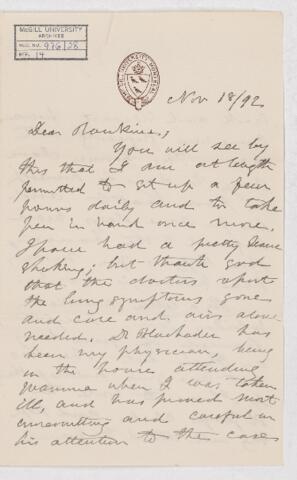 McGILL UNIVERSITY
ARCHIVES
ACC. NO. 976/28
REF. 14
Nov 18/92
Dear Rankine,
You will see by
this that I am at length
permitted to sit up a few
hours daily and to take
pen in hand once more.
I have had a pretty severe
shaking; but thank God
that the doctors report
the lung symptoms gone
and care and alone
needed. Dr Blackader has
been my physician, being
in the house attending
Mamma when I was taken
ill, and has proved most
unremitting and careful in
his attention to the cases